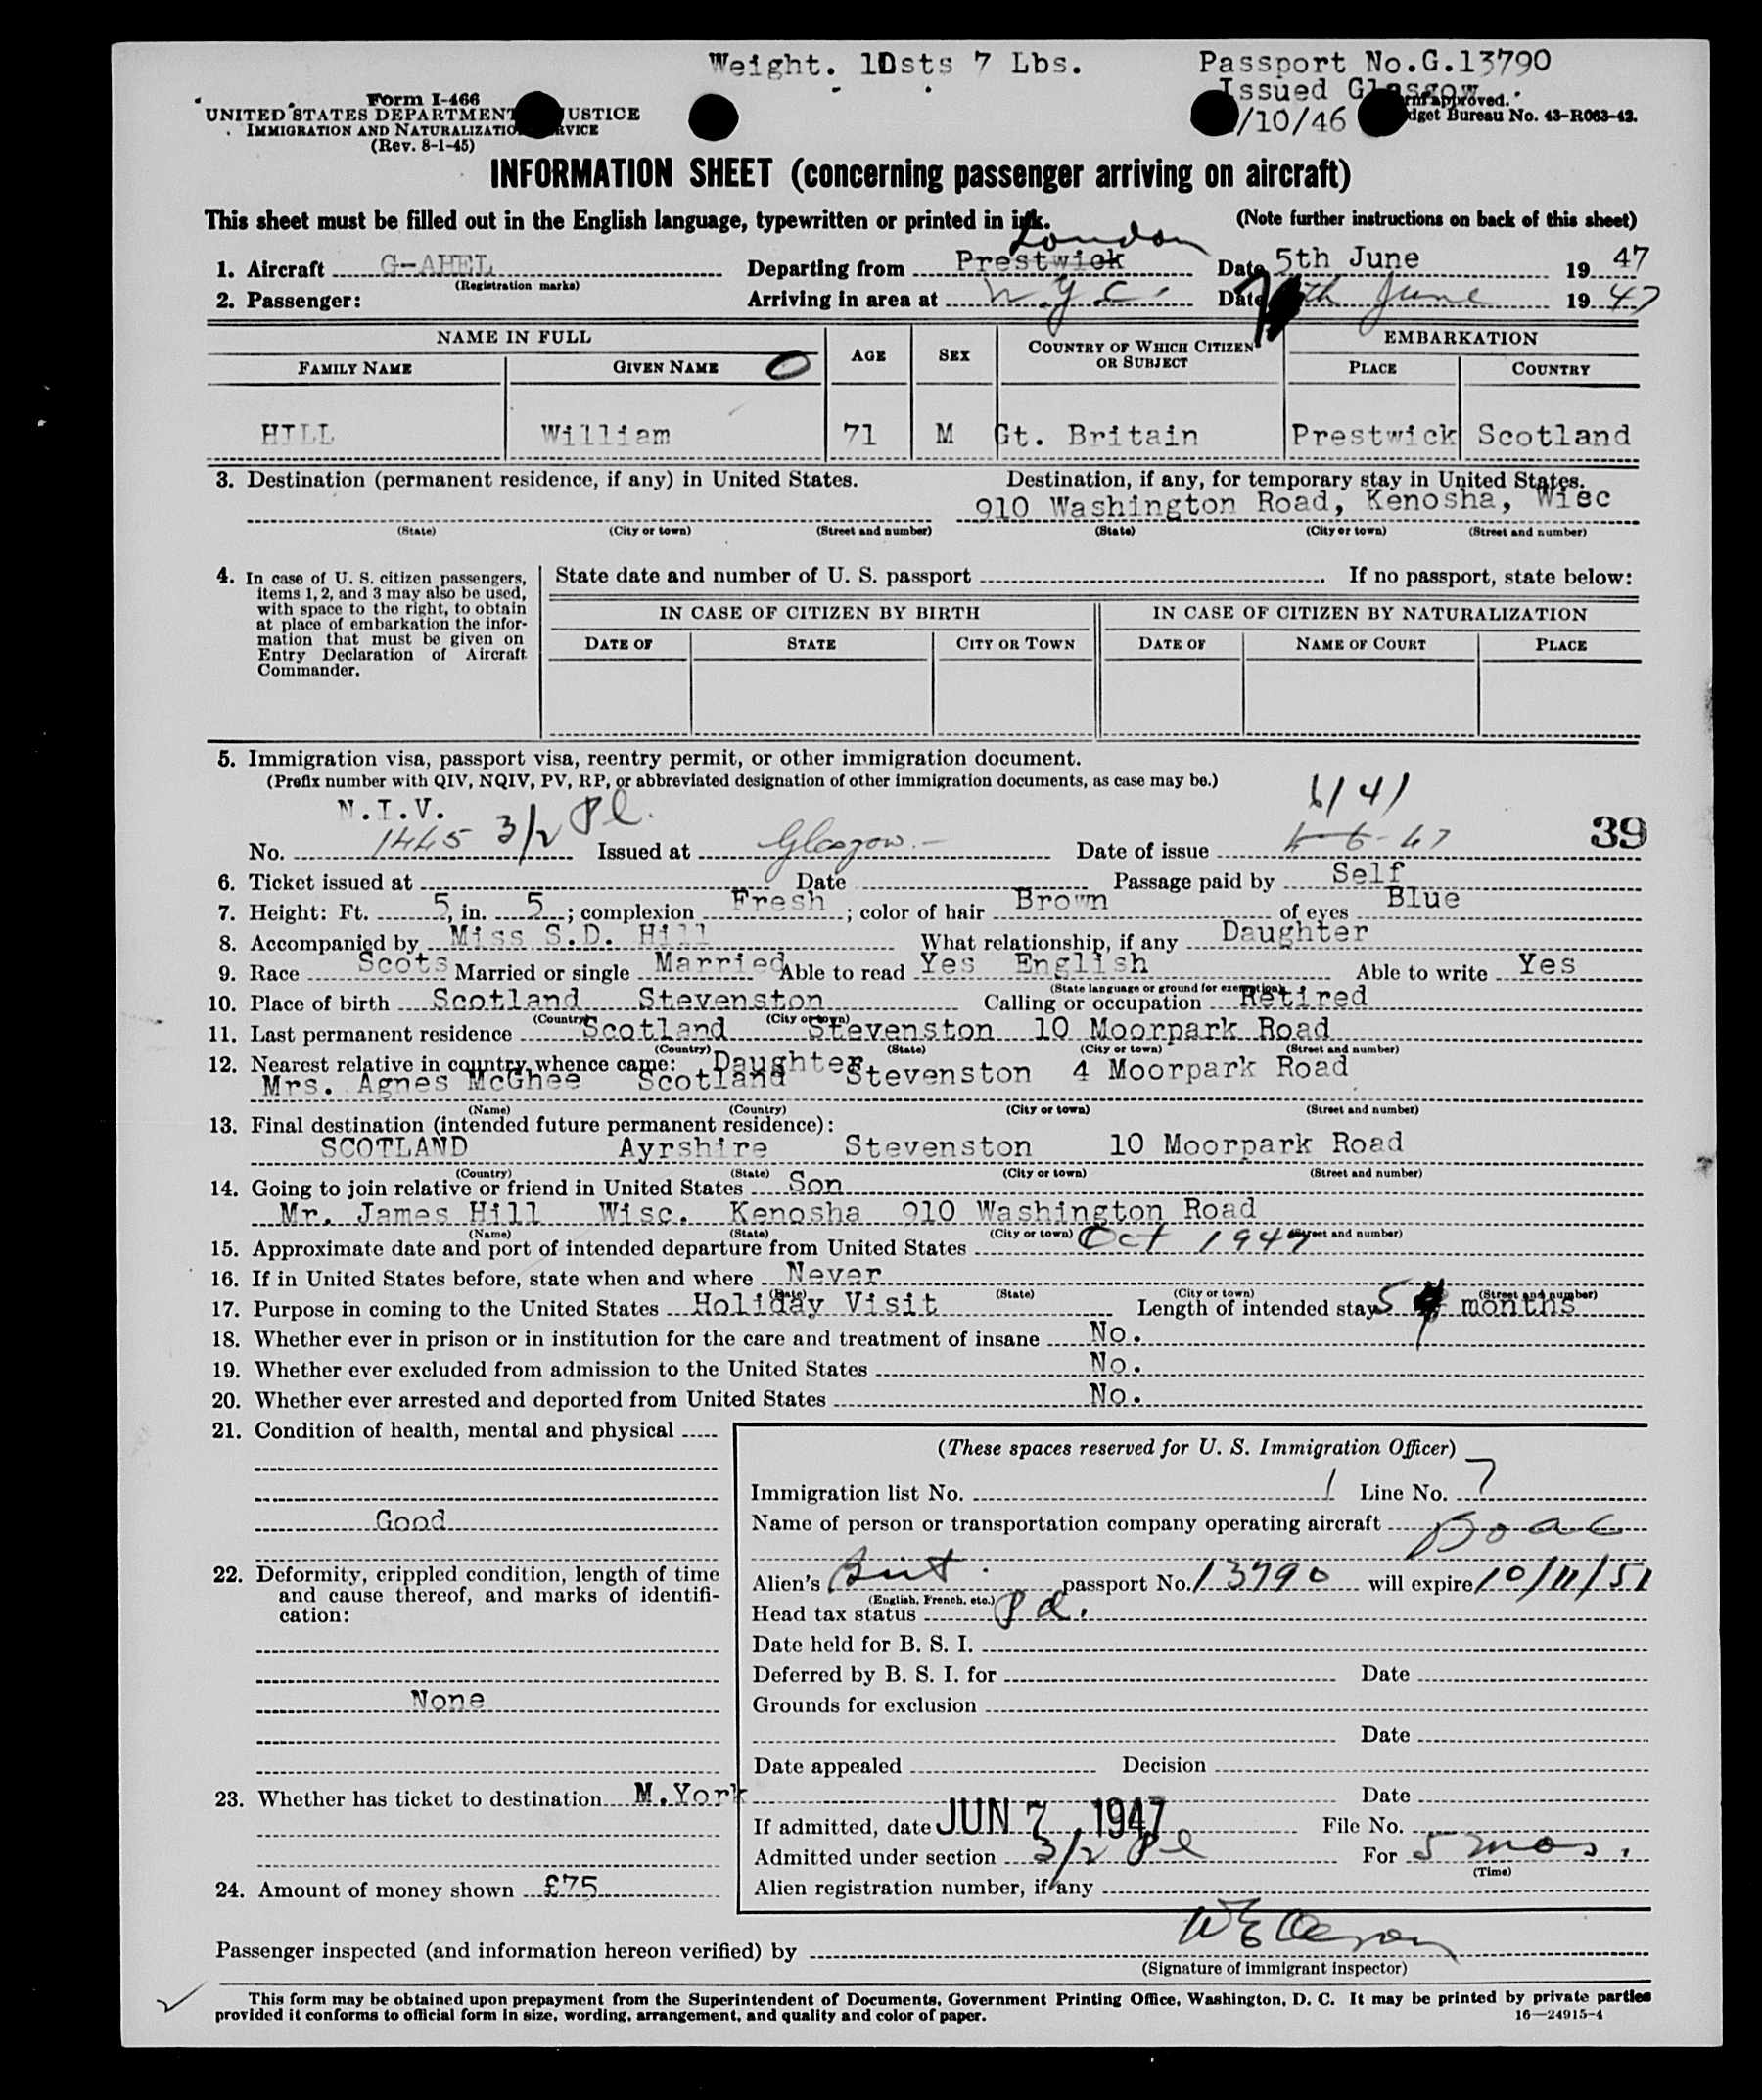 Weight. 10sts 7 Lbs. Passport No.G.13790
Issued Glasgow
/10/46
Form I-466
UNITED STATES DEPARTMENT JUSTICE
IMMIGRATION AND NATURALIZATION SERVICE
(Rev. 8-1-45)
Form approved.
Budget Bureau No. 43-R063-42.
INFORMATION SHEET (concerning passenger arriving on aircraft)
This sheet must be filled out in the English language, typewritten or printed in ink. (Note further instructions on back of this sheet)
London
1. Aircraft G-AHEL Departing from Prestwick Date 5th June 19 47
(Registration marks)
2. Passenger: Arriving in area at N.Y.C. Date 7th June 19 47
NAME IN FULL AGE SEX COUNTRY OF WHICH CITIZEN OR SUBJECT EMBARKATION
FAMILY NAME GIVEN NAME PLACE COUNTRY
HILL William 71 M Gt. Britain Prestwick Scotland
3. Destination (permanent residence, if any) in United States. Destination, if any, for temporary stay in United States.
910 Washington Road, Kenosha, Wisc
(State) (City or town) (Street and number) (State) (City or town) (Street and number)
4. In case of U. S. citizen passengers, items 1, 2, and 3 may also be used, with space to the right, to obtain at place of embarkation the information that must be given on Entry Declaration of Aircraft Commander.
State date and number of U. S. passport If no passport, state below:
IN CASE OF CITIZEN BY BIRTH IN CASE OF CITIZEN BY NATURALIZATION
DATE OF STATE CITY OR TOWN DATE OF NAME OF COURT PLACE
5. Immigration visa, passport visa, reentry permit, or other immigration document.
(Prefix number with QIV, NQIV, PV, RP, or abbreviated designation of other immigration documents, as case may be.)
N.I.V. 3/2 Pl. 6/41
No. 1445 Issued at Glasgow Date of issue 4-6-47 39
6. Ticket issued at Date Passage paid by Self
7. Height: Ft. 5, in. 5; complexion Fresh; color of hair Brown of eyes Blue
8. Accompanied by Miss S.D. Hill What relationship, if any Daughter
9. Race Scots Married or single Married Able to read Yes English Able to write Yes
(State language or ground for exemption)
10. Place of birth Scotland Stevenston Calling or occupation Retired
(Country) (City or town)
11. Last permanent residence Scotland Stevenston 10 Moorpark Road
(Country) (State) (City or town) (Street and number)
12. Nearest relative in country whence came: Daughter
Mrs. Agnes McGhee Scotland Stevenston 4 Moorpark Road
(Name) (Country) (City or town) (Street and number)
13. Final destination (intended future permanent residence):
SCOTLAND Ayrshire Stevenston 10 Moorpark Road
(Country) (State) (City or town) (Street and number)
14. Going to join relative or friend in United States Son
Mr. James Hill Wisc. Kenosha 910 Washington Road
(Name) (State) (City or town) (Street and number)
15. Approximate date and port of intended departure from United States Oct 1947
16. If in United States before, state when and where Never
(Date) (State) (City or town) (Street and number)
17. Purpose in coming to the United States Holiday Visit Length of intended stay 5 months
18. Whether ever in prison or in institution for the care and treatment of insane No.
19. Whether ever excluded from admission to the United States No.
20. Whether ever arrested and deported from United States No.
21. Condition of health, mental and physical
Good
22. Deformity, crippled condition, length of time and cause thereof, and marks of identification:
None
23. Whether has ticket to destination M.York
24. Amount of money shown £75
(These spaces reserved for U. S. Immigration Officer)
Immigration list No. 1 Line No. 7
Name of person or transportation company operating aircraft BOAC
Alien's Brit. passport No. 13790 will expire 10/11/51
(English, French, etc.)
Head tax status Pd.
Date held for B. S. I.
Deferred by B. S. I. for Date
Grounds for exclusion
Date
Date appealed Decision
Date
If admitted, date JUN 7 1947 File No.
Admitted under section 3/2 Pl For 5 mos.
(Time)
Alien registration number, if any
Passenger inspected (and information hereon verified) by
(Signature of immigrant inspector)
This form may be obtained upon prepayment from the Superintendent of Documents, Government Printing Office, Washington, D. C. It may be printed by private parties
provided it conforms to official form in size, wording, arrangement, and quality and color of paper. 16—24915-4